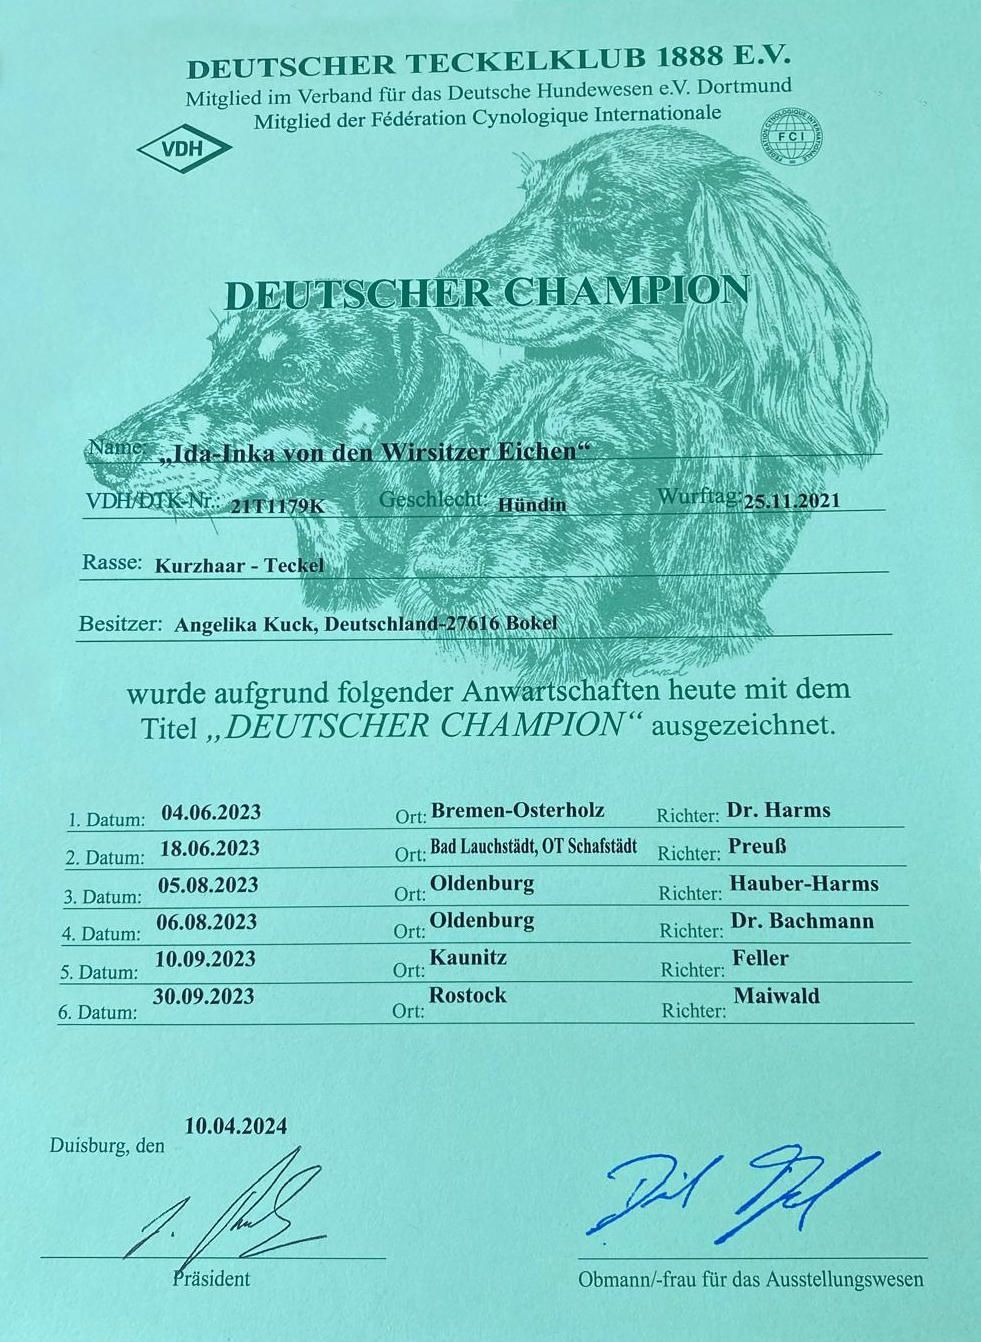 DEUTSCHER TECKELKLUB 1888 E.V.
Mitglied im Verband für das Deutsche Hundewesen e.V. Dortmund
Mitglied der Fédération Cynologique Internationale
VDH
FEDERATION CYNOLOGIQUE INTERNATIONALE
FCI
DEUTSCHER CHAMPION
Name: „Ida-Inka von den Wirsitzer Eichen“
VDH/DTK-Nr.: 21T1179K Geschlecht: Hündin Wurftag: 25.11.2021
Rasse: Kurzhaar - Teckel
Besitzer: Angelika Kuck, Deutschland-27616 Bokel
Conrad
wurde aufgrund folgender Anwartschaften heute mit dem
Titel „DEUTSCHER CHAMPION“ ausgezeichnet.
1. Datum: 04.06.2023 Ort: Bremen-Osterholz Richter: Dr. Harms
2. Datum: 18.06.2023 Ort: Bad Lauchstädt, OT Schafstädt Richter: Preuß
3. Datum: 05.08.2023 Ort: Oldenburg Richter: Hauber-Harms
4. Datum: 06.08.2023 Ort: Oldenburg Richter: Dr. Bachmann
5. Datum: 10.09.2023 Ort: Kaunitz Richter: Feller
6. Datum: 30.09.2023 Ort: Rostock Richter: Maiwald
Duisburg, den 10.04.2024
Präsident
Obmann/-frau für das Ausstellungswesen